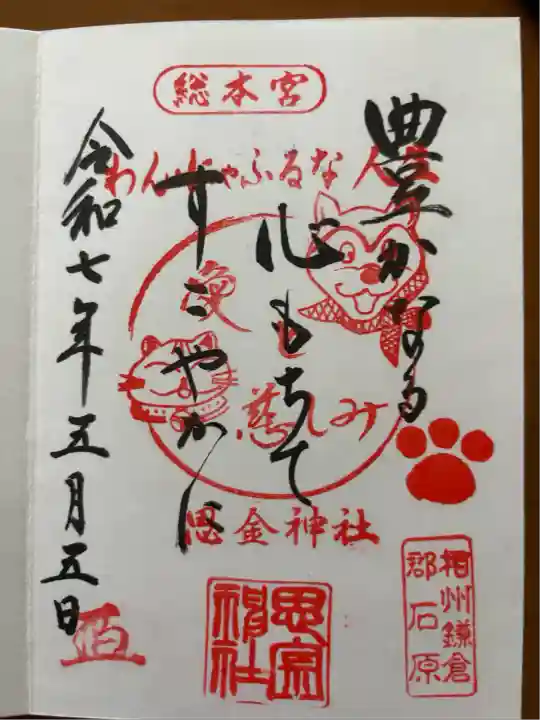 総本宮
豊かなる
心もちて
すこやかに
わんにゃふるな人生
愛
慈しみ
思金神社
相州鎌倉
郡石原
令和七年五月五日